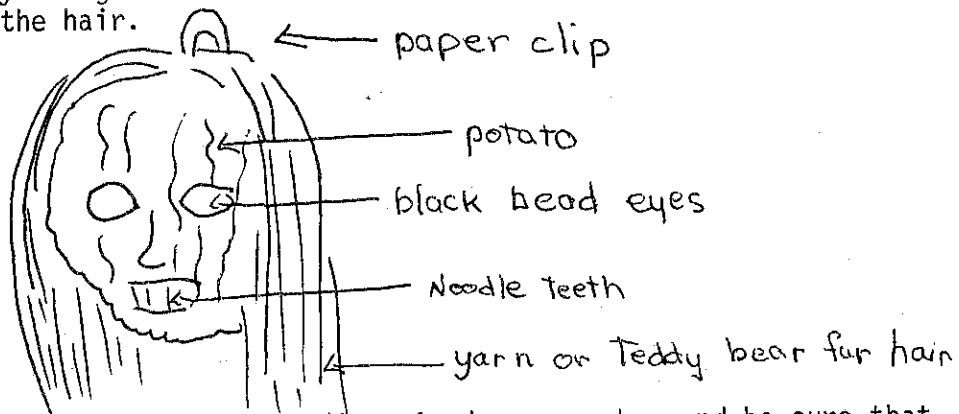 the hair.
paper clip
potato
black bead eyes
Noodle teeth
yarn or Teddy bear fur hair
and be sure that